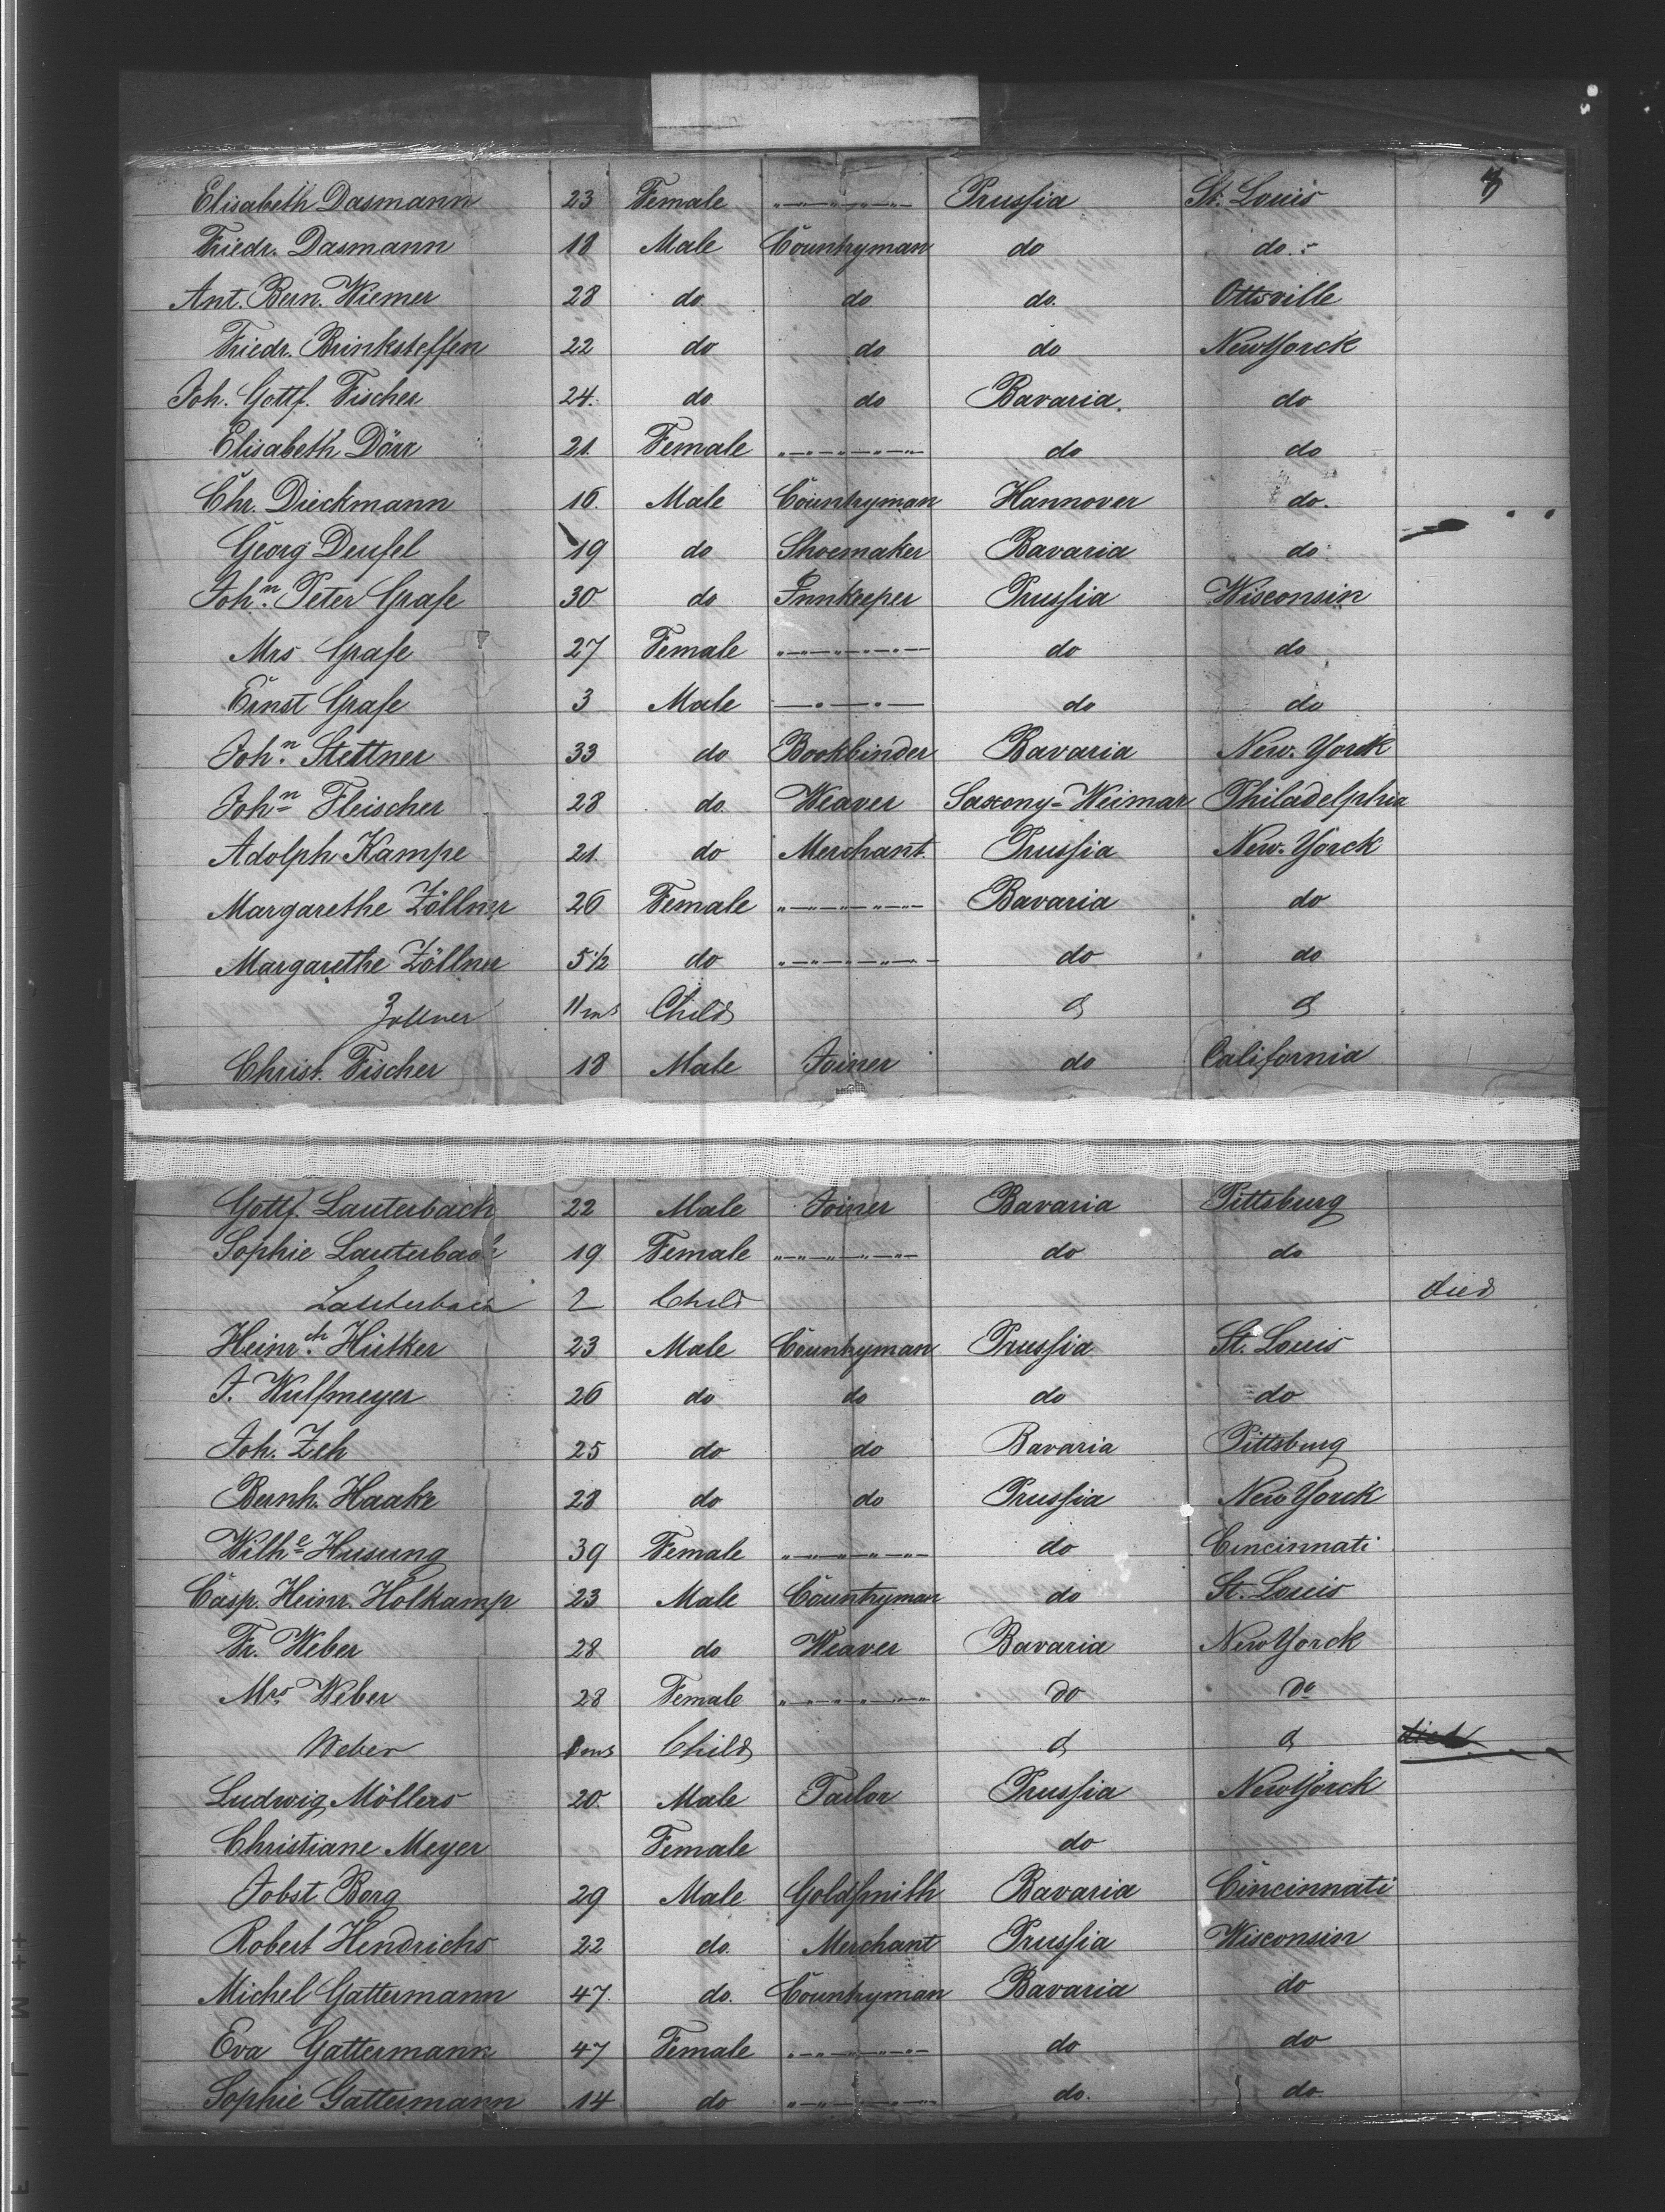 Elisabeth Dasmann 23 Female Prussia St. Louis
Friedr. Dasmann 18 Male Countryman do do.
Ant. Bern. Wiemer 28 do. do do. Ottsville
Friedr. Brinksteffen 22 do do do NewYorck
Joh. Gottf. Fischer 24. do do Bavaria. do
Elisabeth Dörr 21. Female do do
Chr. Dieckmann 16. Male Countryman Hannover do.
Georg Deufel 19 do Shoemaker Bavaria do
John. Peter Grafe 30 do Innkeeper Prussia Wisconsin
Mrs Grafe 27 Female do do
Ernst Grafe 3 Male do do
John. Stettner 33 do Bookbinder Bavaria New-Yorck
John Fleischer 28 do. Weaver Saxony-Weimar Philadelphia
Adolph Kampe 21 do Merchant Prussia New-Yorck
Margarethe Zöllner 26 Female Bavaria do
Margarethe Zöllner 5 1/2 do do do
Zollner 11 ms Child d d
Christ. Fischer 18 Male Joiner do California
Gottf. Lauterbach 22 Male Joiner Bavaria Pittsburg
Sophie Lauterbach 19 Female do do
Lauterbach 2 Child died
Heinrch. Hütker 23 Male Countryman Prussia St. Louis
J. Wulfmeyer 26 do do do do
Joh. Zeh 25 do do Bavaria Pittsburg
Bernh. Haake 28 do do Prussia New Yorck
Wilhe Husung 39 Female do Cincinnati
Casp. Heinr. Holkamp 23 Male Countryman do St. Louis
Fr. Weber 28 do Weaver Bavaria New Yorck
Mrs. Weber 28 Female do do
Weber ms Child d d died
Ludwig Möllers 20. Male Tailor Prussia NewYorck
Christiane Meyer Female do
Jobst Borg 29 Male Goldsmith Bavaria Cincinnati
Robert Hendrichs 22 do. Merchant Prussia Wisconsin
Michel Gattermann 47. do. Countryman Bavaria do
Eva Gattermann 47 Female do do
Sophie Gattermann 14 do do. do